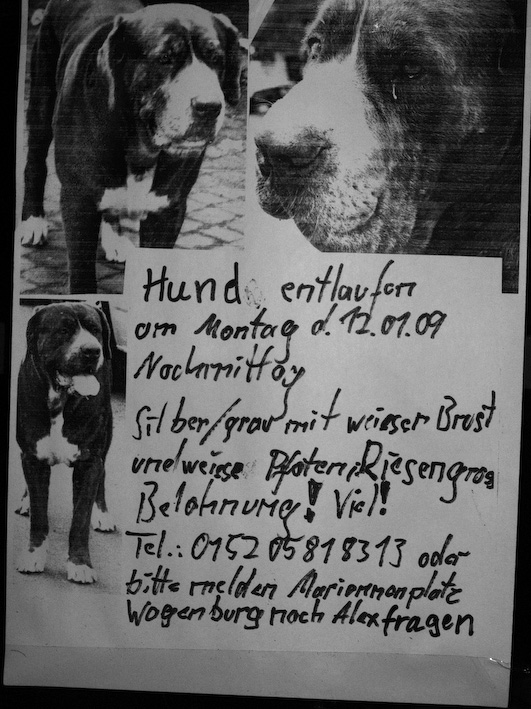 Hund entlaufen
am Montag d. 12.01.09
Nachmittag
Silber/grau mit weisser Brust
und weisse Pfoten, Riesengross
Belohnung! Viel!
Tel.: 0152 05818313 oder
bitte melden Mariannenplatz
Wagenburg nach Alex fragen